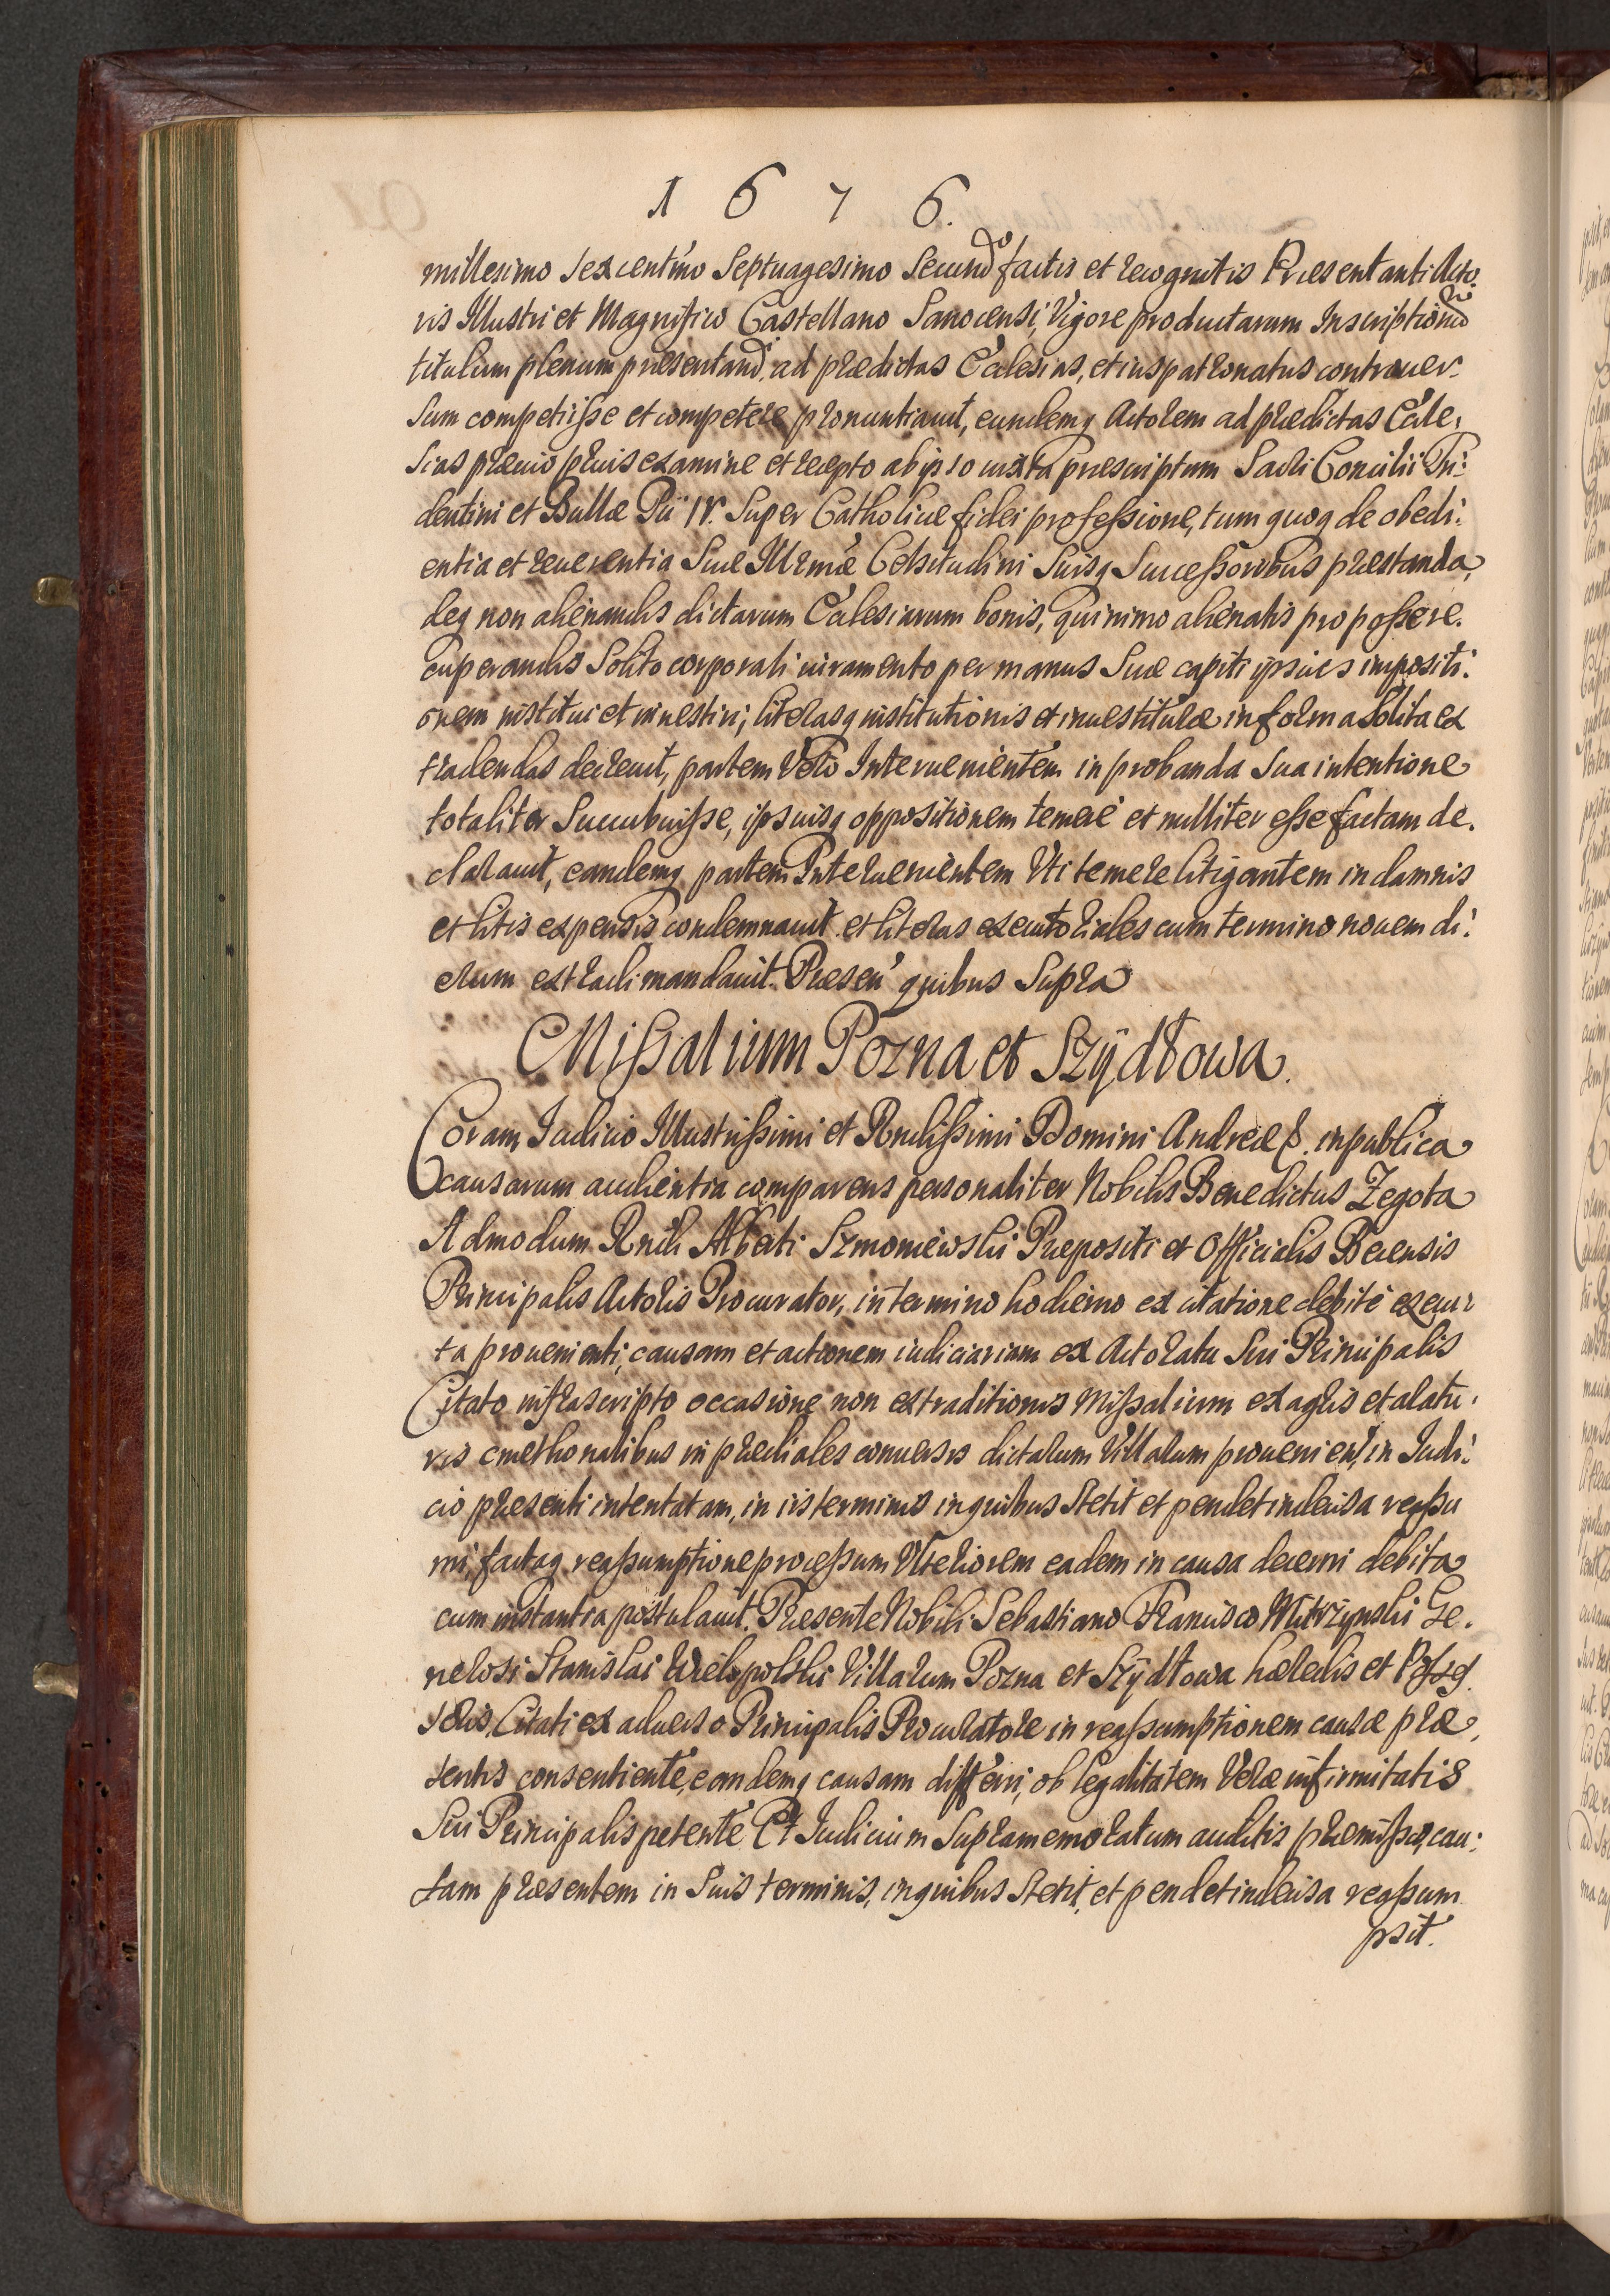 1 6 7 6.
millesimo sexcentimo Septuagesimo Secundo factis et recognitis Præsentanti Acto.
ris Illustri et Magnifico Castellano Sanocensi, Vigore productarum Inscriptionū
titulum plenum præsentandi ad prædictas Ecclesias, et ius patronatus controuer.
sum competiisse et competere pronuntiauit, eundemq Actorem ad prædictas Eccle.
sias præuio prius examine et recepto ab ipso iuxta præscriptum Sacri Concilii Tri:
dentini et Bullæ Pii IV. Super Catholicæ fidei professione, tum quoq de obedi:
entia et reuerentia Suæ Illrmæ Celsitudini Suisq Successoribus præstanda,
deq non alienandis dictarum Ecclesiarum bonis, quinimo alienatis pro posse re.
cuperandis Solito corporali iuramento per manus Suæ capiti ipsius impositi:
onem institui et inuestiri; literasq institutionis et inuestituræ in forma Solita ex
tradendas decreuit, partem Vero Interuenientem in probanda Sua intentione
totaliter Succubuisse, ipsiusq oppositionem temere et nulliter esse factam de.
clarauit, eandemq partem Interuenientem Vti temere litigantem in damnis
et litis expensis condemnauit et literas executoriales cum termino nouem di:
erum extradi mandauit. Præsen quibus Supra
Missalium Pozna et Szÿdłowa.
Coram Iudicio Illustrissimi et Rndissimi Domini Andreæ &. in publica
causarum audientia comparens personaliter Nobilis Benedictus Zegota
Admodum Rndi Alberti Szmoniewski Præpositi et Officialis Becensis
Principalis Actoris Procurator, in termino hodierno ex citatione debite execu:
ta prouenienti, causam et actionem iudiciariam ex Actoratu Sui Principalis
Citato infrascripto occasione non extraditionis Missalium ex agris et aratu.
ris cmethonalibus in prædiales conuersis dictarum Villarum prouenien, in Iudi:
cio præsenti intentatam, in iis terminis in quibus Stetit et pendet indecisa reassu
mi, factaq reassumptione processum Vlteriorem eadem in causa decerni debita
cum instantia postulauit. Præsente Nobili Sebastiano Francisco Ge.
nerosi Stanislai Wielopolski Villarum Pozna et Szÿdłowa hæredis et Posses.
soris, Citati ex aduerso Principalis Procuratore in reassumptionem causæ præ,
sentis consentiente, eandemq causam differri, ob legalitatem Veræ infirmitatis
Sui Principalis petente Et Iudicium Supramemoratum auditis præmissis, cau:
sam præsentem in Suis terminis, in quibus Stetit, et pendet indecisa reassum
psit.